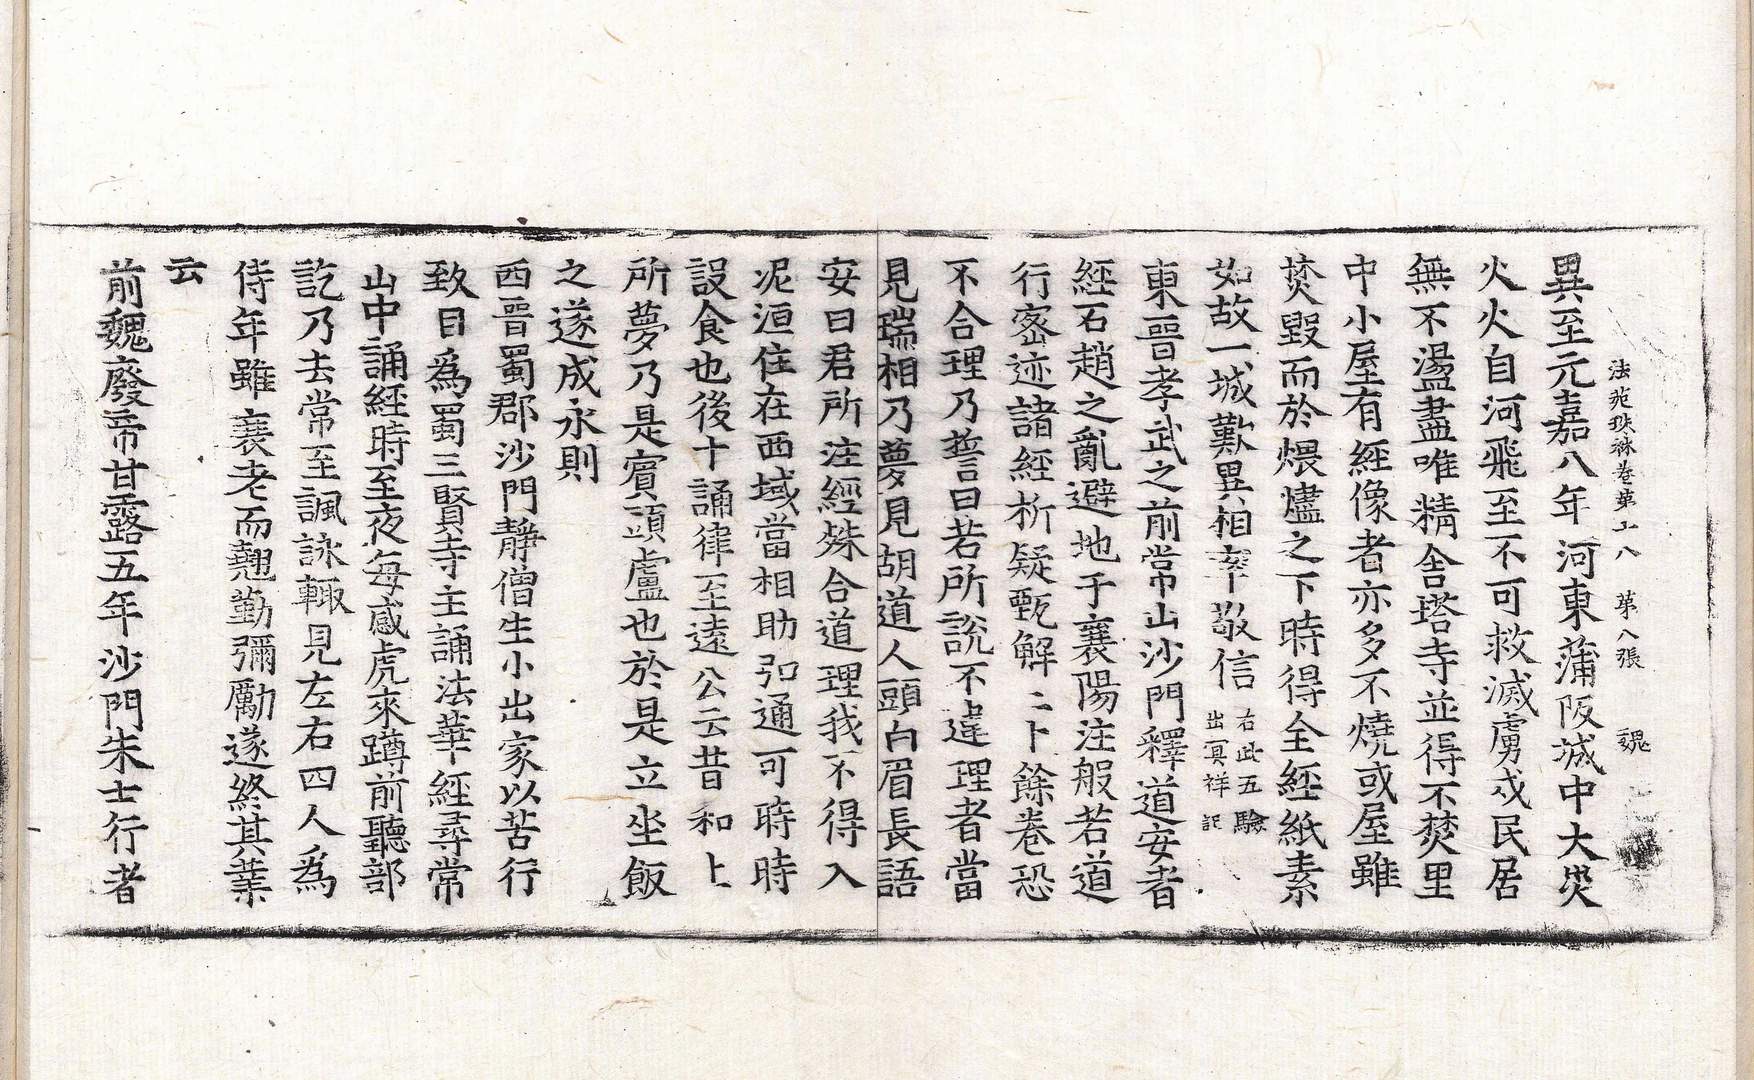 法苑珠林卷第十八　第八張　魏
異至元嘉八年河東蒲阪城中大災
火火自河飛至不可救滅虜戍民居
無不盪盡唯精舍塔寺並得不焚里
中小屋有經像者亦多不燒或屋雖
焚毀而於煨燼之下時得全經紙素
如故一城歎異相率敬信右此五驗出冥祥記
東晉孝武之前常山沙門釋道安者
經石趙之亂避地于襄陽注般若道
行密迹諸經析疑甄解二十餘卷恐
不合理乃誓曰若所說不違理者當
見瑞相乃夢見胡道人頭白眉長語
安曰君所注經殊合道理我不得入
泥洹住在西域當相助弘通可時時
設食也後十誦律至遠公云昔和上
所夢乃是賓頭盧也於是立坐飯
之遂成永則
西晉蜀郡沙門靜僧生小出家以苦行
致目為蜀三賢寺主誦法華經尋常
山中誦經時至夜每感虎來蹲前聽部
訖乃去常至諷詠輒見左右四人為
侍年雖衰老而翹勤彌勵遂終其業
云
前魏廢帝甘露五年沙門朱士行者